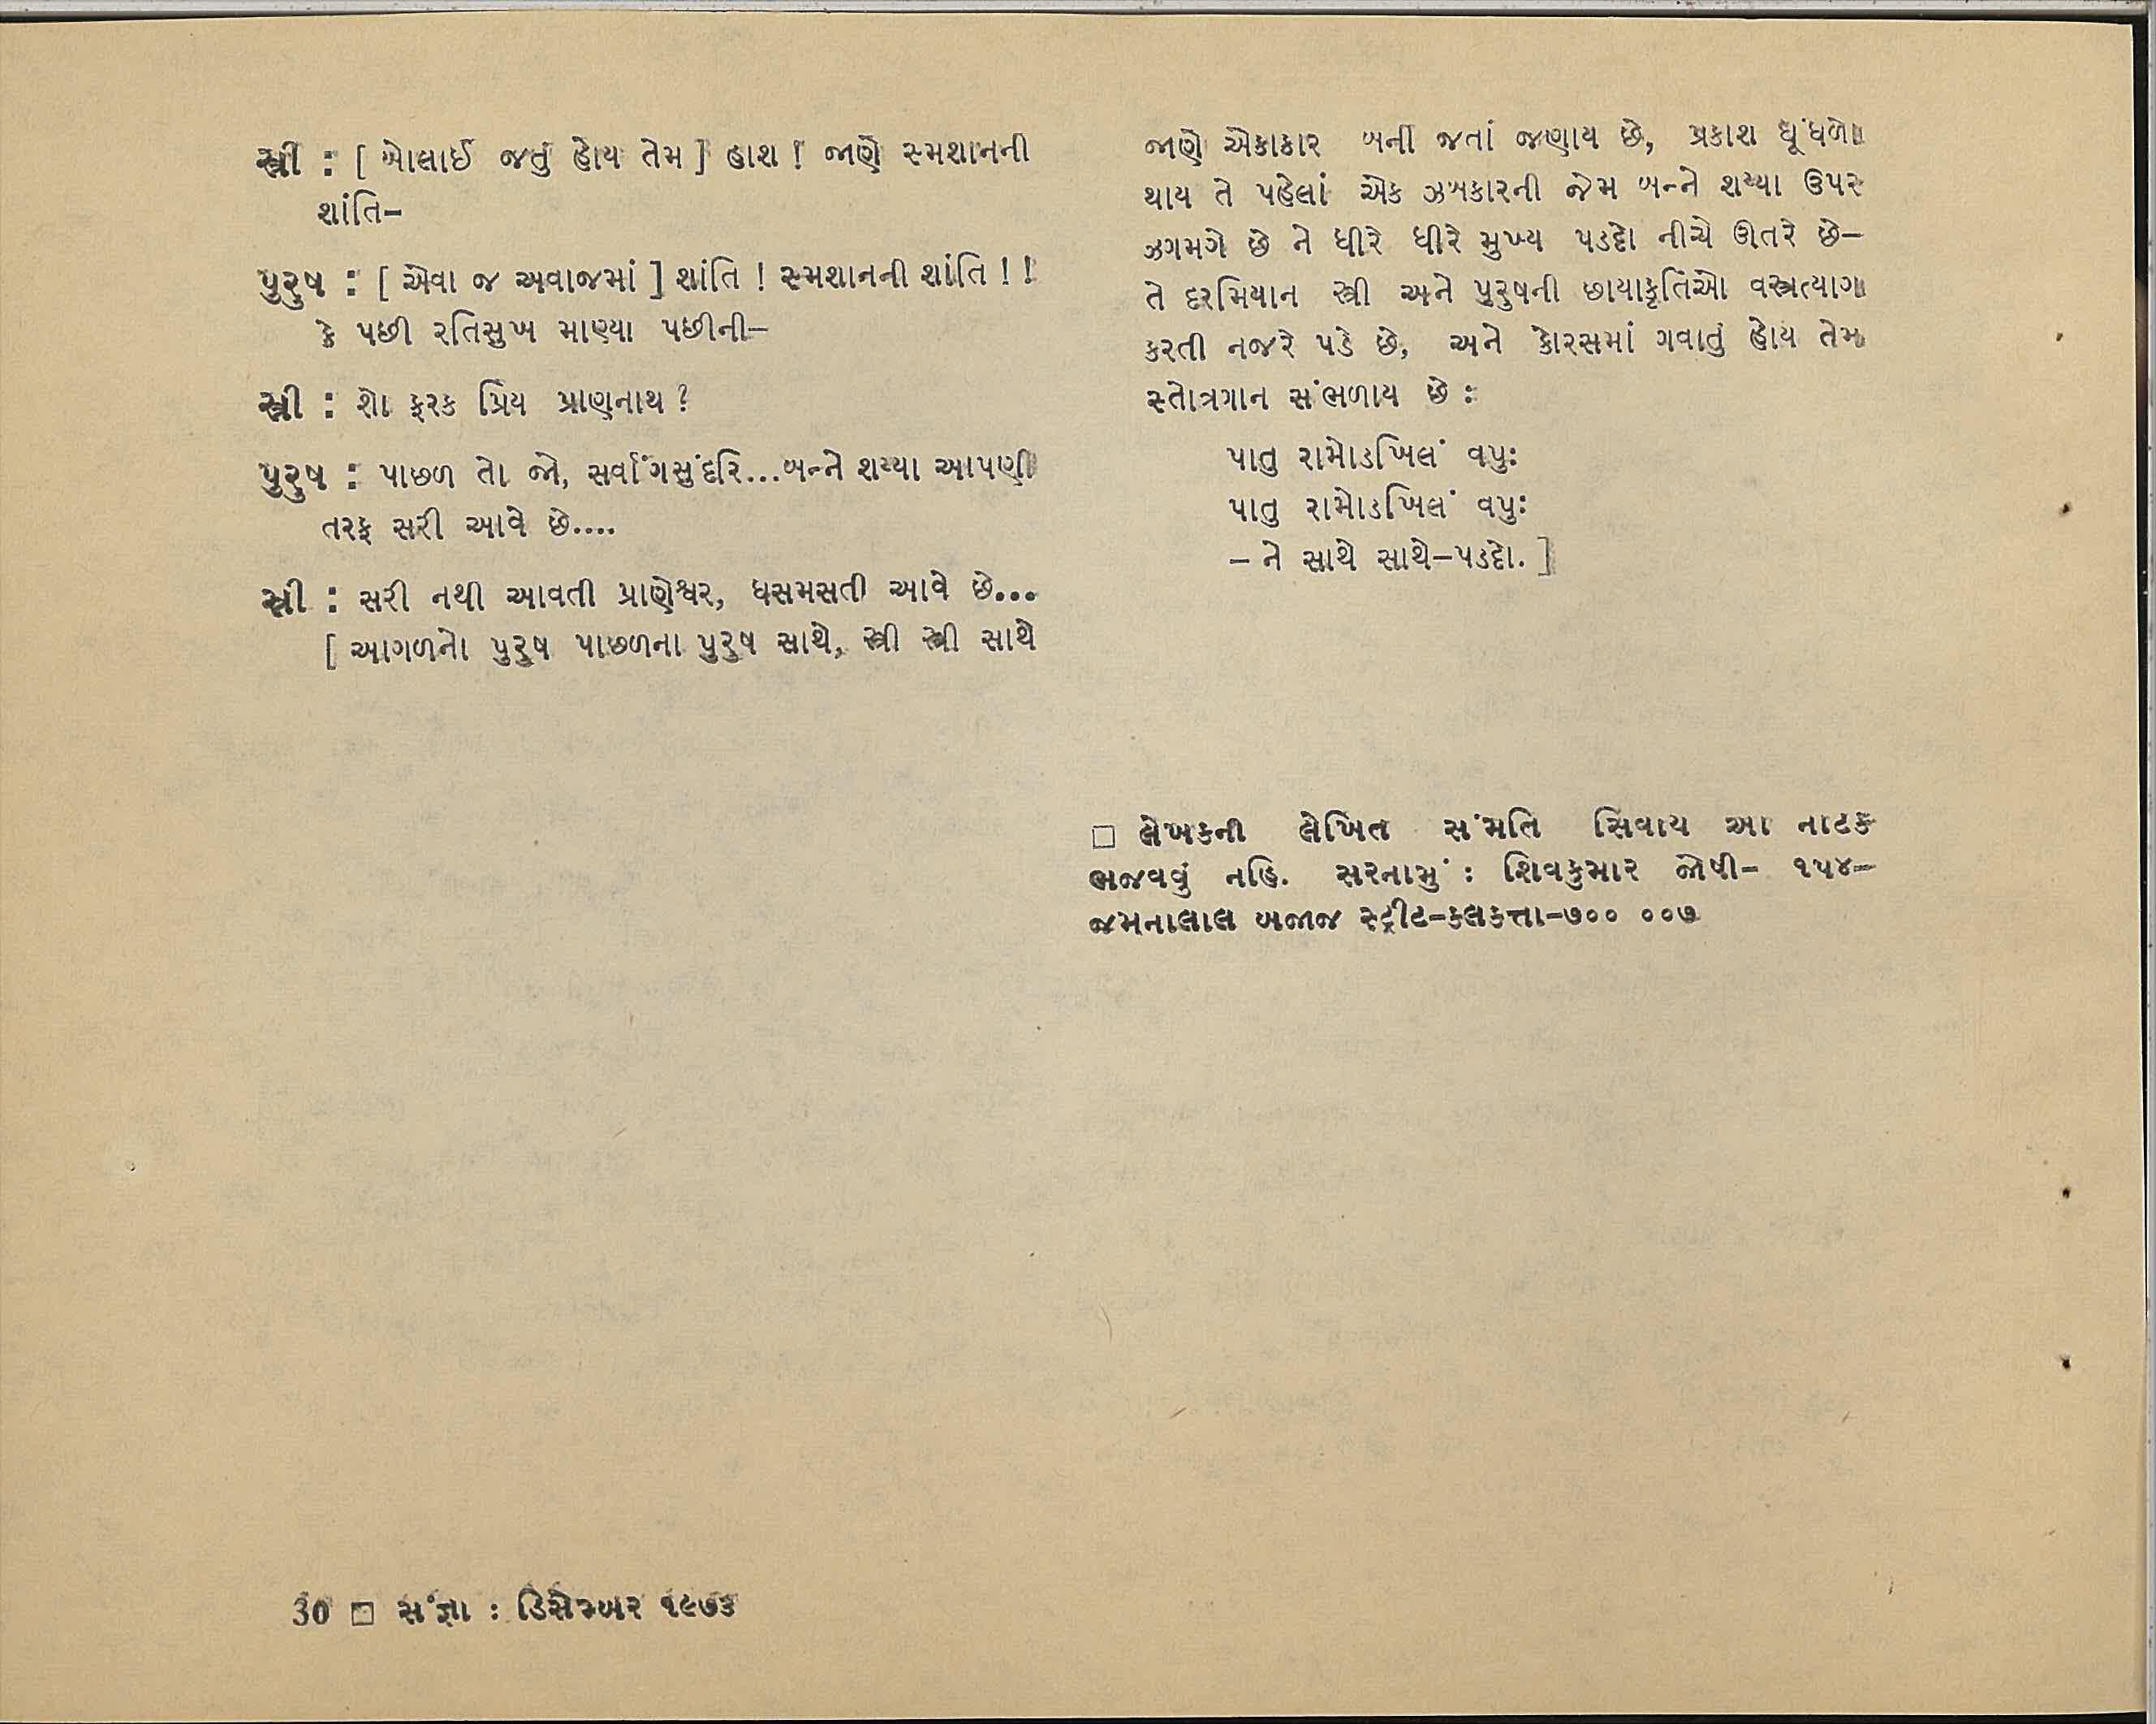 સ્ત્રી : [ બોલાઈ જતું હોય તેમ ] હાશ ! જાણે સ્મશાનની
શાંતિ–
પુરુષ : [ એવા જ અવાજમાં ] શાંતિ ! સ્મશાનની શાંતિ ! !
કે પછી રતિસુખ માણ્યા પછીની–
સ્ત્રી : શો ફરક પ્રિય પ્રાણનાથ ?
પુરુષ : પાછળ તો જો, સર્વાંગસુંદરિ...બન્ને શય્યા આપણી
તરફ સરી આવે છે....
સ્ત્રી : સરી નથી આવતી પ્રાણેશ્વર, ધસમસતી આવે છે...
[ આગળનો પુરુષ પાછળના પુરુષ સાથે, સ્ત્રી સ્ત્રી સાથે
જાણે એકાકાર બની જતાં જણાય છે, પ્રકાશ ધૂંધળો
થાય તે પહેલાં એક ઝબકારની જેમ બન્ને શય્યા ઉપર
ઝગમગે છે ને ધીરે ધીરે મુખ્ય પડદો નીચે ઊતરે છે–
તે દરમિયાન સ્ત્રી અને પુરુષની છાયાકૃતિઓ વસ્ત્રત્યાગ
કરતી નજરે પડે છે, અને કોરસમાં ગવાતું હોય તેમ
સ્તોત્રગાન સંભળાય છે :
પાતુ રામોડખિલં વપુઃ
પાતુ રામોડખિલં વપુઃ
– ને સાથે સાથે–પડદો. ]
□ લેખકની લેખિત સંમતિ સિવાય આ નાટક
ભજવવું નહિ. સરનામું : શિવકુમાર જોષી– ૧૫૪–
જમનાલાલ બજાજ સ્ટ્રીટ–કલકત્તા–૭૦૦ ૦૦૭
30 □ સંજ્ઞા : ડિસેમ્બર ૧૯૭૩